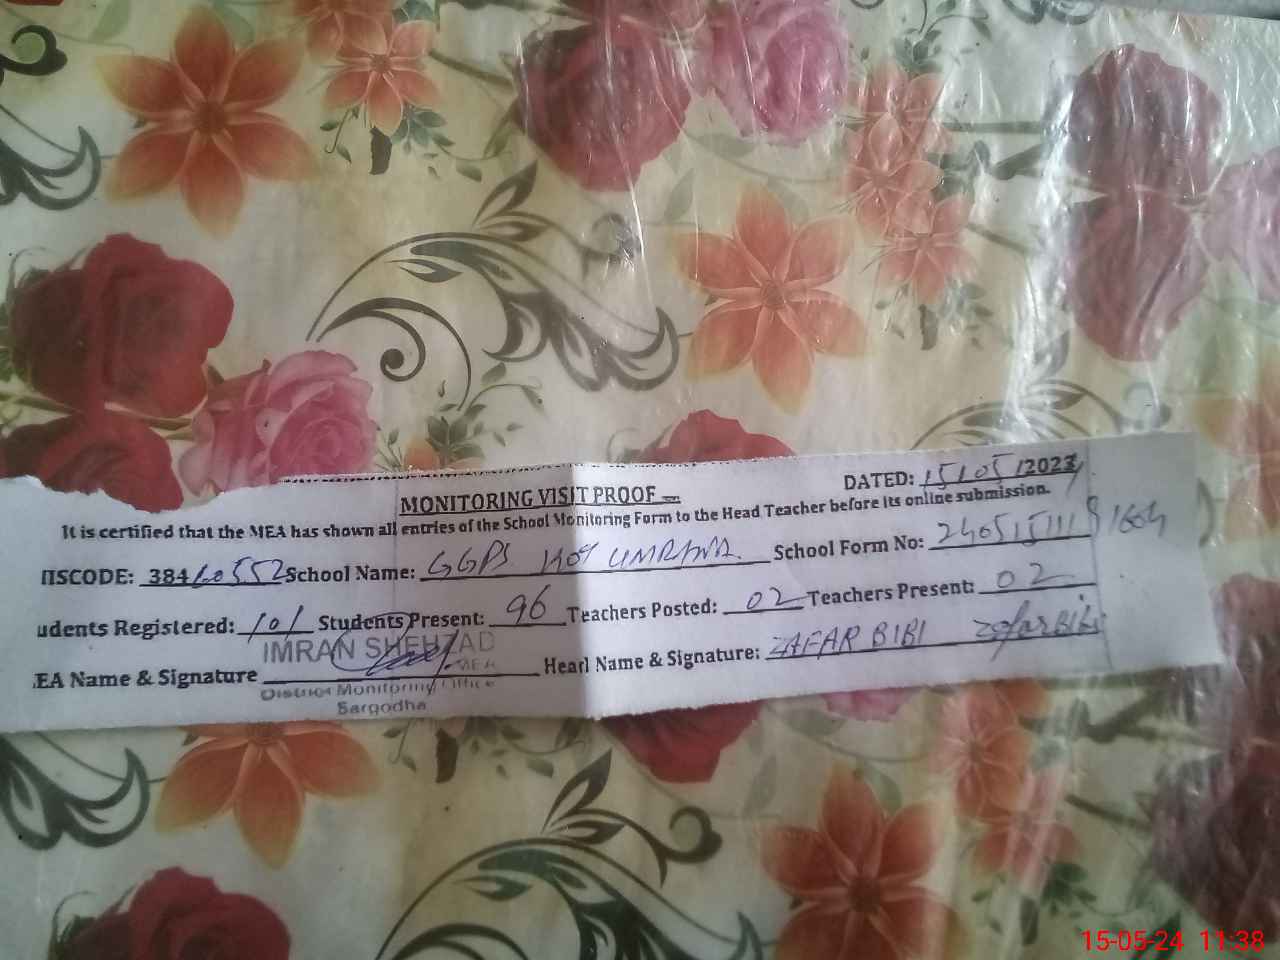 MONITORING VISIT PROOF
DATED: 15/05/2024
It is certified that the MEA has shown all entries of the School Monitoring Form to the Head Teacher before its online submission.
IISCODE: 38410552 School Name: GGPS KOT UMRANA. School Form No: 240515111
udents Registered: 101 Students Present: 96 Teachers Posted: 02 Teachers Present: 02
IMRAN SHEHZAD
MEA
EA Name & Signature Head Name & Signature: ZAFAR BIBI Zafar BiBi
District Monitoring Office
Sargodha
15-05-24 11:38